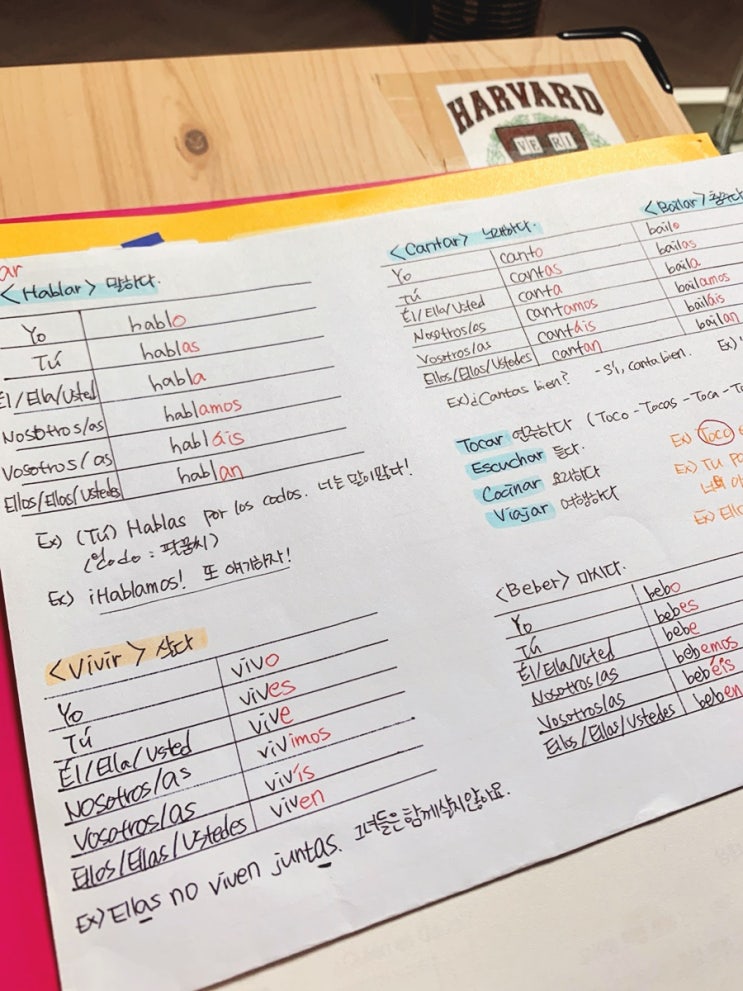 HARVARD
VE RI
ar
<Hablar> 말하다.
Yo hablo
Tú hablas
Él/Ella/Usted habla
Nosotros/as hablamos
Vosotros/as habláis
Ellos/Ellas/Ustedes hablan
Ex) (Tú) Hablas por los codos. 너는 말이많다!
(codo : 팔꿈치)
Ex) ¡Hablamos! 또 얘기하자!
<Vivir> 살다
Yo vivo
Tú vives
Él/Ella/Usted vive
Nosotros/as vivimos
Vosotros/as vivís
Ellos/Ellas/Ustedes viven
Ex) Ellas no viven juntas. 그녀들은함께살지않아요.
<Cantar> 노래하다.
Yo canto
Tú cantas
Él/Ella/Usted canta
Nosotros/as cantamos
Vosotros/as cantáis
Ellos/Ellas/Ustedes cantan
Ex) ¿Cantas bien? - Sí, canta bien. Ex)
<Bailar> 춤추다
bailo
bailas
baila
bailamos
bailáis
bailan
Tocar 연주하다 (Toco - Tocas - Toca - To
Escuchar 듣다.
Cocinar 요리하다
Viajar 여행하다
Ex) Toco
Ex) Tu po
너의 아
Ex) Ella
<Beber> 마시다.
Yo bebo
Tú bebes
Él/Ella/Usted bebe
Nosotros/as bebemos
Vosotros/as bebéis
Ellos/Ellas/Ustedes beben